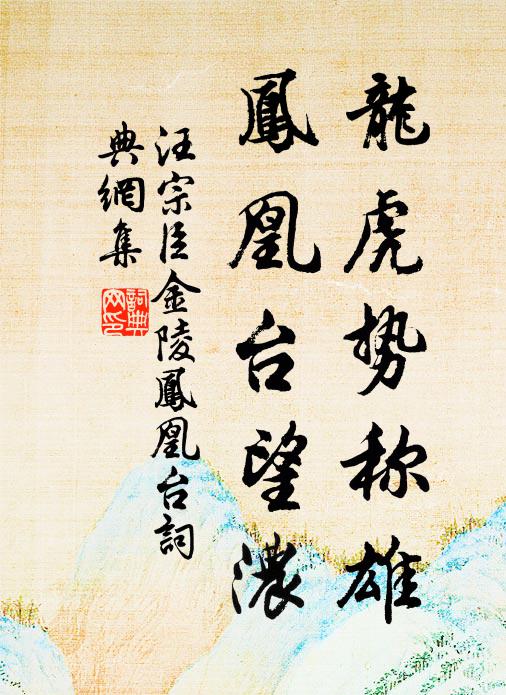 龍虎势称雄
鳳凰台望濃
汪宗臣金陵鳳凰台詞
典網集
詞典网印